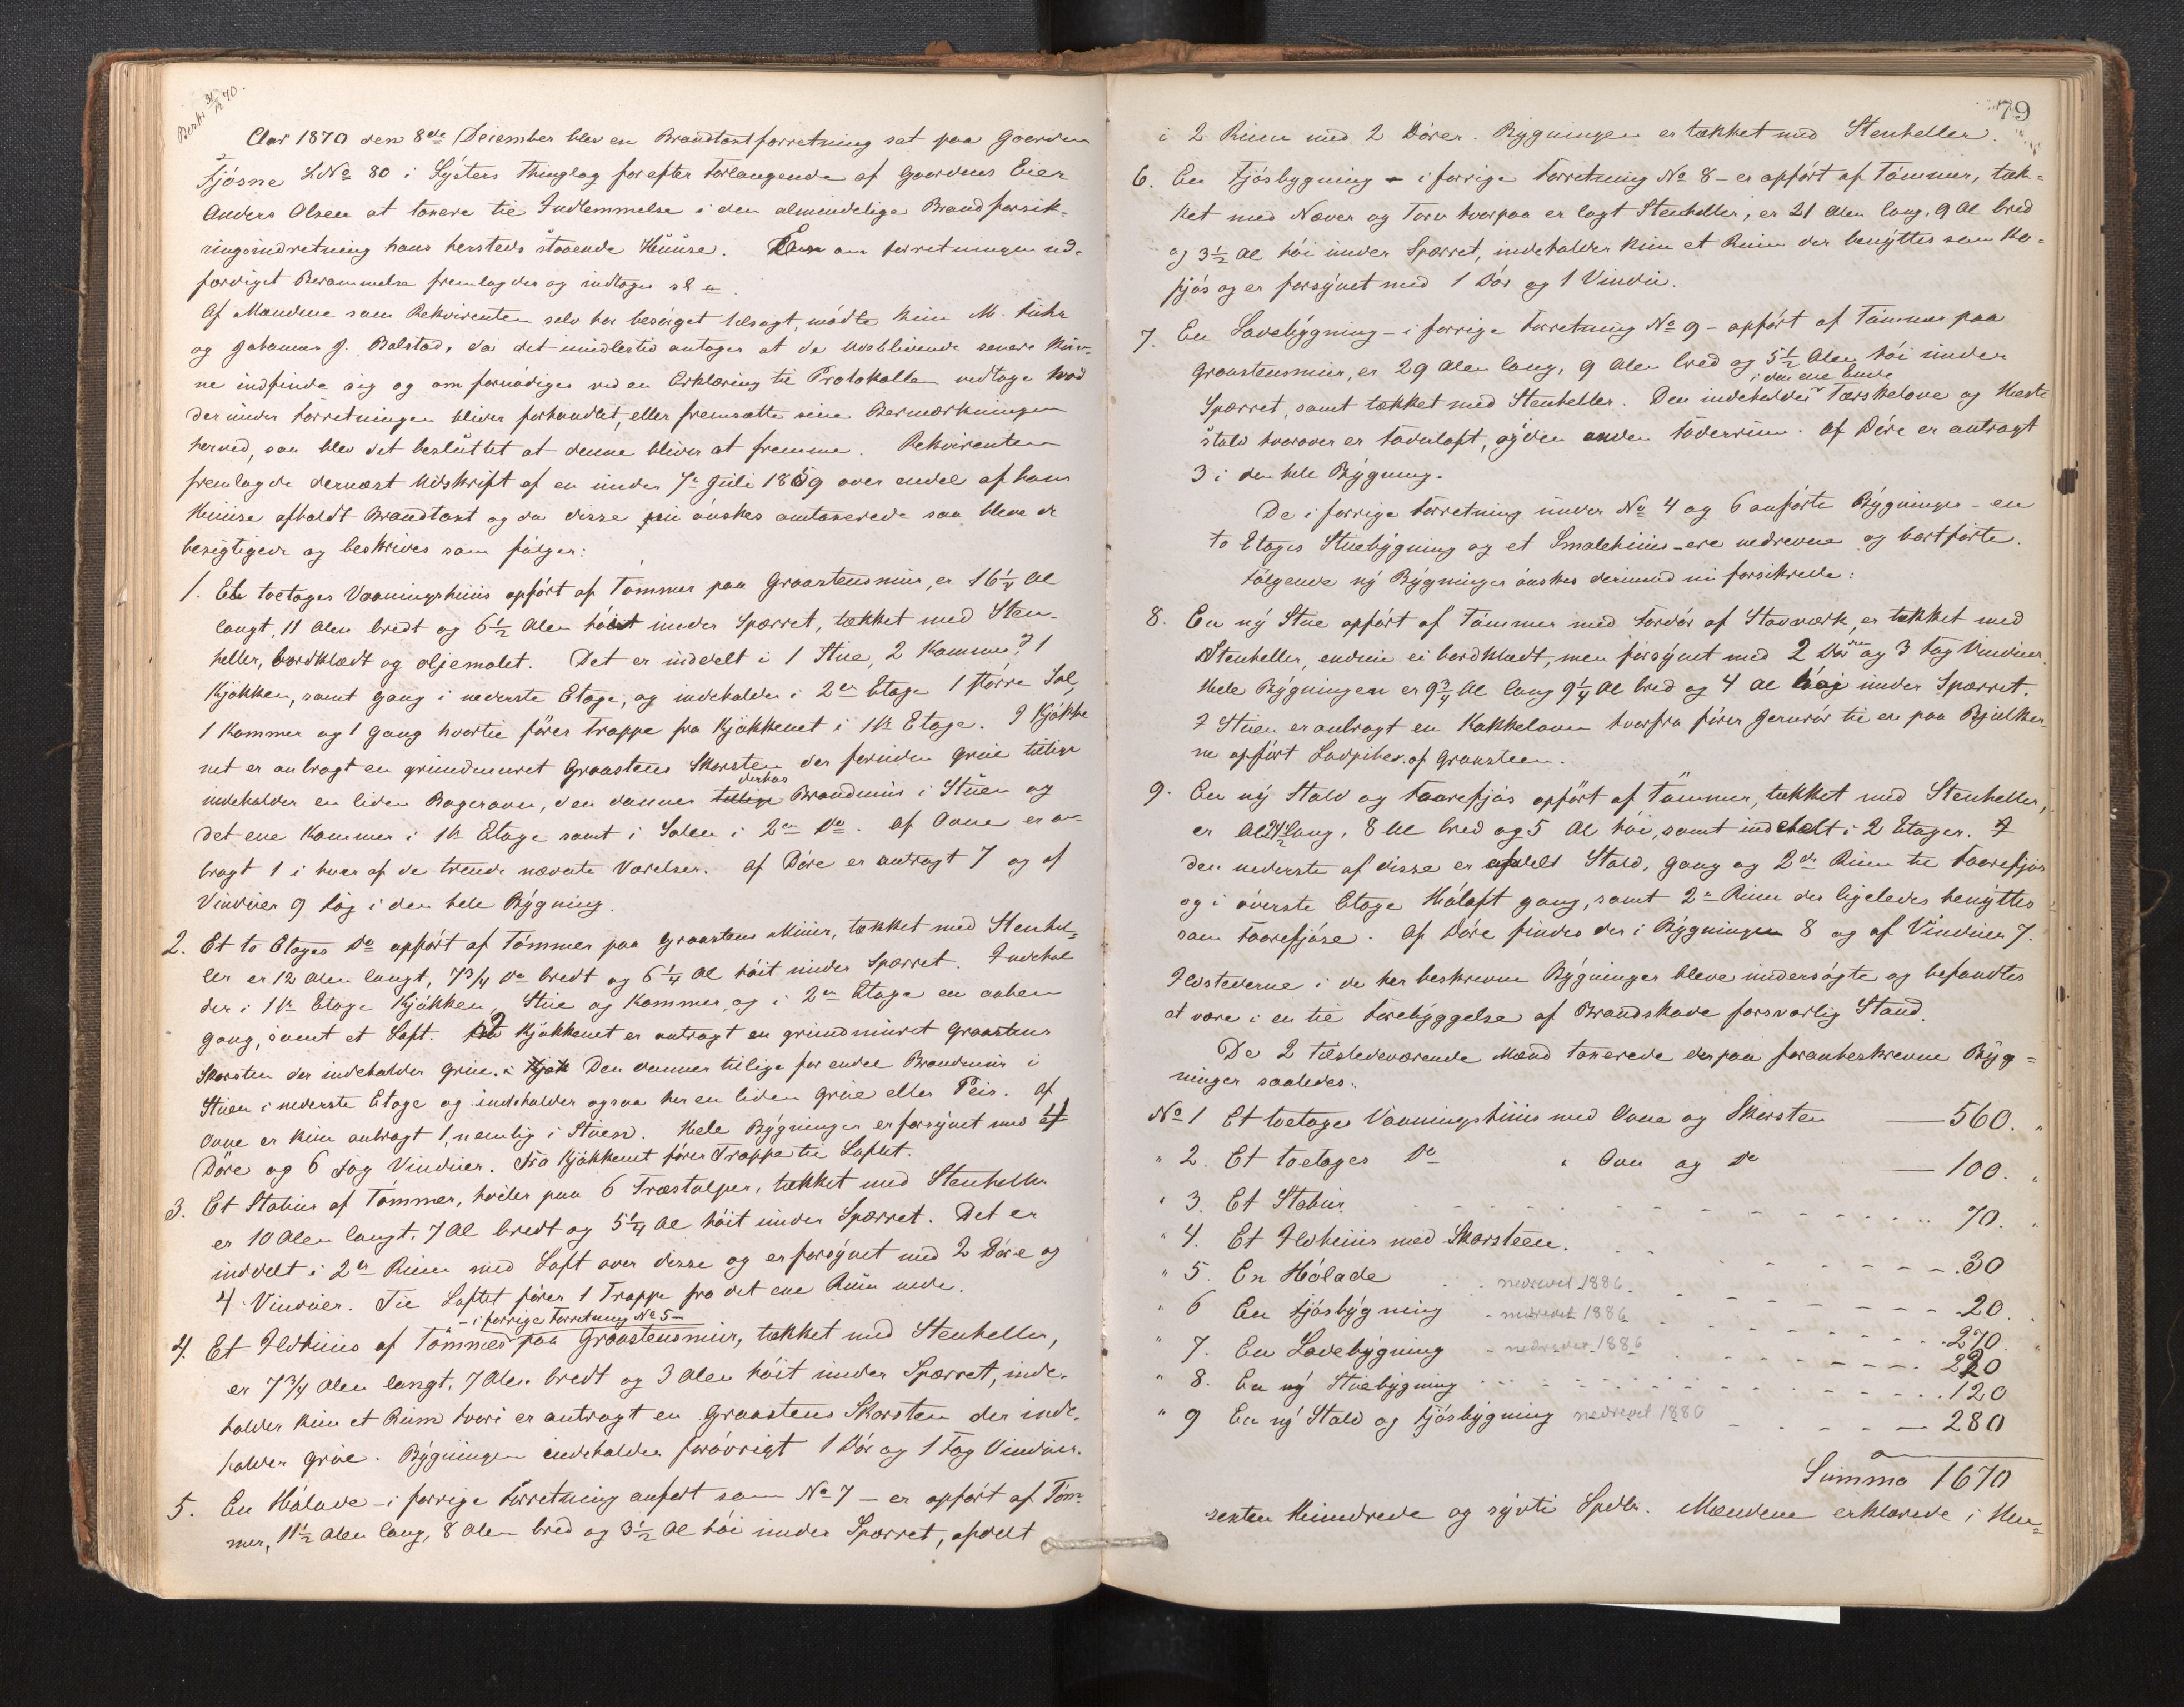 Beski 31/12 70.
Aar 1870 den 8de December blev en Brandtaxtforretning sat paa Gaarden
Fjösne LNo 80 i Lÿsters Thinglag for efter Forlangende af Gaardens Eier
Anders Olsen at taxere til Indlemmelse i den almindelige Brandforsik-
ringsindretning hans hersteds staaende Huuse. Den om Forretningen ud-
færdiget Berammelse fremlagdes og indtages sl a
Af Mændene som Rekvirenten selv har besörget tilsagt, mödte kun M. Fuhr
og Johannes J. Bolstad, da det imidlertid antages at de Udeblivende senere kun-
ne indfinde sig og om fornödiges ved en Erklæring til Protokollen vedtage hvad
der under Forretningen bliver forhandlet, eller fremsætte sine Bemærkninger
herved, saa blev det besluttet at denne bliver at fremme. Rekvirenten
fremlagde dernæst Udskrift af en under 7de Juli 1859 over endel af hans
Huuse afholdt Brandtaxt og da disse nu önskes omtaxerede saa bleve de
besigtigede og beskrives som fölger:
1. Et toetages Vaaningshuus opfört af Tömmer paa Graastensmuur, er 16 1/4 Al
langt, 11 Alen bredt og 6 1/2 Alen höit under Spærret, tækket med Sten-
heller, bordklædt og oljemalet. Det er inddelt i 1 Stue, 2 Kammere, 1
Kjökken, samt Gang i nederste Etage, og indeholder i 2en Etage 1 större Sal,
1 Kammer og 1 Gang hvortil förer Trappe fra Kjökkenet i 1ste Etage. I Kjökke
net er anbragt en grundmuret Graastens Skorsten der foruden Grue tillige
indeholder en liden Bagerovn, den danner tillige derhos Brandmuur i Stuen og
det ene Kammer i 1ste Etage samt i Salen i 2en Do. Af Ovne er an
bragt 1 i hver af de trende nævnte Værelser. Af Döre er anbragt 7 og af
Vinduer 9 Fag i den hele Bÿgning.
2. Et to Etages Do opfört af Tömmer paa Graastens Muur, tækket med Stenhel-
ler er 12 Alen langt, 7 3/4 Do bredt og 6 1/4 Al höit under Spærret. Indehol
der i 1ste Etage Kjökken, Stue og Kammer og i 2en Etage en aaben
Gang, samt et Loft. I Kjökkenet er anbragt en grundmuret Graastens
Skorsten der indeholder Grue. i Kjök Den danner tillige for endel Brandmuur i
Stuen i nederste Etage og indeholder ogsaa her en liden Grue eller Peis. Af
Ovne er kun anbragt 1, nemlig i Stuen. Hele Bÿgningen er forsÿnet med 4
Döre og 6 Fag Vinduer. Fra Kjökkenet förer Trappe til Loftet.
3. Et Stabur af Tömmer, hviler paa 6 Træstolper, tækket med Stenheller
er 10 Alen langt, 7 Al bredt og 5 1/4 Al höit under Spærret. Det er
inddelt i 2de Rum med Loft over disse og er forsÿnet med 2 Döre og
4 Vinduer. Til Loftet förer 1 Trappe fra det ene Rum nede.
- i forrige Forretning No 5 -
4. Et Ildhuus af Tömmer paa Graastensmuur, tækket med Stenheller,
er 7 3/4 Alen langt, 7 Alen bredt og 3 Alen höit under Spærret, inde-
holder kun et Rum hvori er anbragt en Graastens Skorsten der inde-
holder Grue. Bÿgningen indeholder forövrigt 1 Dör og 1 Fag Vinduer.
5. En Hölade - i forrige Forretning anfört som No 7 - er opfört af Töm-
mer, 11 1/2 Alen lang, 8 Alen bred og 3 1/2 Al höi under Spærret, afdelt
79
i 2 Rum med 2 Dörer. Bÿgningen er tækket med Stenheller.
6. En Fjösbygning - i forrige Forretning No 8 - er opfört af Tömmer, tæk-
ket med Næver og Torv hvorpaa er lagt Stenheller, er 21 Alen lang, 9 Al bred
og 3 1/2 Al höi under Spærret, indeholder kun et Rum der benÿttes som Ko-
fjös og er forsÿnet med 1 Dör og 1 Vindu.
7. En Ladebÿgning - i forrige Forretning No 9 - opfört af Tömmer paa
Graastensmuur, er 29 Alen lang, 9 Alen bred og 5 1/2 Alen höi under
Spærret, samt tækket med Stenheller. Den indeholder i den ene Ende Tærskelove og Heste
stald hvorover er Foderloft, og i den anden Foderrum. Af Döre er anbragt
3 i den hele Bÿgning.
De i forrige Forretning under No 4 og 6 anförte Bÿgninger - en
to Etages Stuebÿgning og et Smalehuus - ere nedrevne og bortförte.
Fölgende nÿ Bÿgninger önskes derimod nu forsikrede:
8. En nÿ Stue opfört af Tömmer med Fordör af Stavværk, er tækket med
Stenheller, endnu ei bordklædt, men forsÿnet med 2 Döre og 3 Fag Vinduer.
Hele Bÿgningen er 9 3/4 Al lang 9 1/4 Al bred og 4 Al höj under Spærret.
I Stuen er anbragt en Kakkelovn hvorfra förer Jernrör til en paa Bjelker
ne opfört Ladpibe af Graasteen.
9. En nÿ Stald og Faarefjös opfört af Tömmer, tækket med Stenheller,
er Al 21 1/2 lang, 8 Al bred og 5 Al höi, samt inddelt i 2 Etager. I
den nederste af disse er afdelt Stald, Gang og 2de Rum til Faarefjös
og i överste Etage Höloft Gang, samt 2de Rum der ligeledes benÿttes
som Faarefjöse. Af Döre findes der i Bÿgningen 8 og af Vinduer 7.
Ildstederne i de her beskrevne Bÿgninger bleve undersögte og befandtes
at være i en til Forebÿggelse af Brandskade forsvarlig Stand.
De 2 tilstedeværende Mænd taxerede derpaa foranbeskrevne Bÿg-
ninger saaledes:
No 1 Et toetages Vaaningshuus med Ovne og Skorsten — 560. "
" 2. Et toetages Do " Ovn og Do — 100. "
" 3. Et Stabur 70. "
" 4. Et Ildhuus med Skorsteen. 30
" 5. En Hölade nedrevet 1886 20.
" 6 En Fjösbÿgning nedrevet 1886 270. "
" 7. En Ladebÿgning nedrevet 1886 220
" 8. En nÿ Stuebÿgning 120
" 9 En nÿ Stald og Fjösbÿgning nedrevet 1880 — 280
Summa 1670
sexten Hundrede og sÿvti Spdlr. Mændene erklærede i Hen-